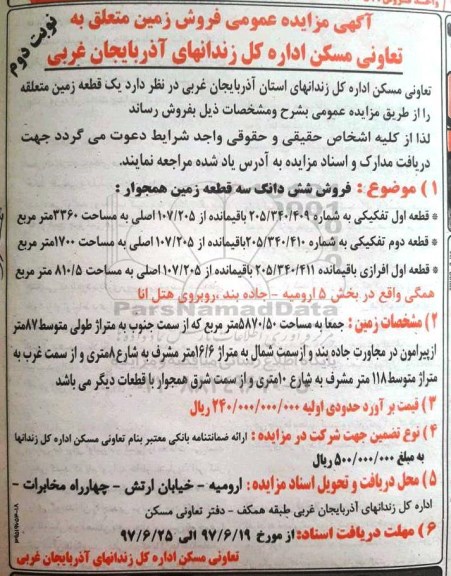 آگهی مزایده عمومی فروش زمین متعلق به
تعاونی مسکن اداره کل زندانهای آذربایجان غربی
نوبت دوم
تعاونی مسکن اداره کل زندانهای استان آذربایجان غربی در نظر دارد یک قطعه زمین متعلقه
را از طریق مزایده عمومی بشرح ومشخصات ذیل بفروش رساند
لذا از کلیه اشخاص حقیقی و حقوقی واجد شرایط دعوت می گردد جهت
دریافت مدارک و اسناد مزایده به آدرس یاد شده مراجعه نمایند.
۱ ) موضوع : فروش شش دانگ سه قطعه زمین همجوار :
* قطعه اول تفکیکی به شماره ۲۰۵/۳۴۰/۴۰۹ باقیمانده از ۱۰۷/۲۰۵ اصلی به مساحت ۳۳۶۰متر مربع
* قطعه دوم تفکیکی به شماره ۲۰۵/۳۴۰/۴۱۰باقیمانده از ۱۰۷/۲۰۵ اصلی به مساحت ۱۷۰۰متر مربع
* قطعه اول افرازی باقیمانده ۲۰۵/۳۴۰/۴۱۱ باقیمانده از ۱۰۷/۲۰۵ اصلی به مساحت ۸۱۰/۵ متر مربع
همگی واقع در بخش ۵ ارومیه - جاده بند ،روبروی هتل آنا
ParsNamadData
۲) مشخصات زمین : جمعا به مساحت ۵۸۷۰/۵۰متر مربع که از سمت جنوب به متراژ طولی متوسط ۸۷متر
ازپیرامون در مجاورت جاده بند و ازسمت شمال به متراژ ۱۶/۶متر مشرف به شارع ۸متری و از سمت غرب به
متراژ متوسط ۱۱۸ متر مشرف به شارع ۱۰متری و از سمت شرق همجوار با قطعات دیگر می باشد
۳) قیمت بر آورد حدودی اولیه ۲۴۰/۰۰۰/۰۰۰/۰۰۰ ریال
۴ ) نوع تضمین جهت شرکت در مزایده : ارائه ضمانتنامه بانکی معتبر بنام تعاونی مسکن اداره کل زندانها
به مبلغ ۵۰۰/۰۰۰/۰۰۰ ریال
۵) محل دریافت و تحویل اسناد مزایده : ارومیه - خیابان ارتش - چهارراه مخابرات -
اداره کل زندانهای آذربایجان غربی طبقه همکف - دفتر تعاونی مسکن
۶ ) مهلت دریافت اسناد: از مورخ ۹۷/۶/۱۹ الی ۹۷/۶/۲۵
تعاونی مسکن اداره کل زندانهای آذربایجان غربی